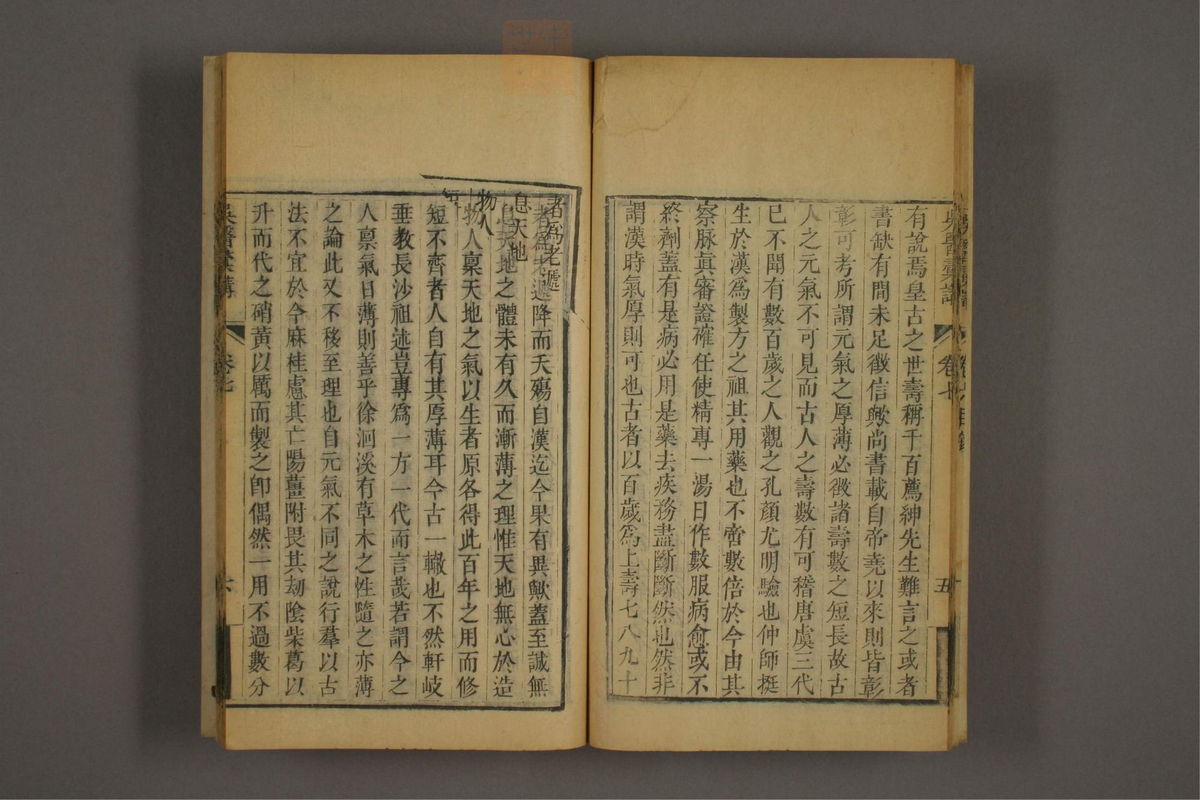 有說焉皇古之世壽稱千百薦紳先生難言之或者
書缺有間未足徵信歟尚書載自帝堯以來則皆彰
彰可考所謂元氣之厚薄必徵諸壽數之短長故古
人之元氣不可見而古人之壽數有可稽唐虞三代
已不聞有數百歲之人觀之孔顏尤明驗也仲師挺
生於漢爲製方之祖其用藥也不啻數倍於今由其
察脉眞審證確任使精專一湯日作數服病愈或不
終劑蓋有是病必用是藥去疾務盡斷斷然也然非
謂漢時氣厚則可也古者以百歲爲上壽七八九十
卷七
五
者爲老遞降而夭殤自漢迄今果有異歟蓋至誠無
息天地之體未有久而漸薄之理惟天地無心於造
物人稟天地之氣以生者原各得此百年之用而修
短不齊者人自有其厚薄耳今古一轍也不然軒岐
垂敎長沙祖述豈專爲一方一代而言哉若謂今之
人稟氣日薄則善乎徐洄溪有草木之性隨之亦薄
之論此又不移至理也自元氣不同之說行羣以古
法不宜於今麻桂慮其亡陽薑附畏其劫陰柴葛以
升而代之硝黃以厲而製之卽偶然一用不過數分
吳醫彙講
卷七
六
者爲老遞
息天地
物人
短